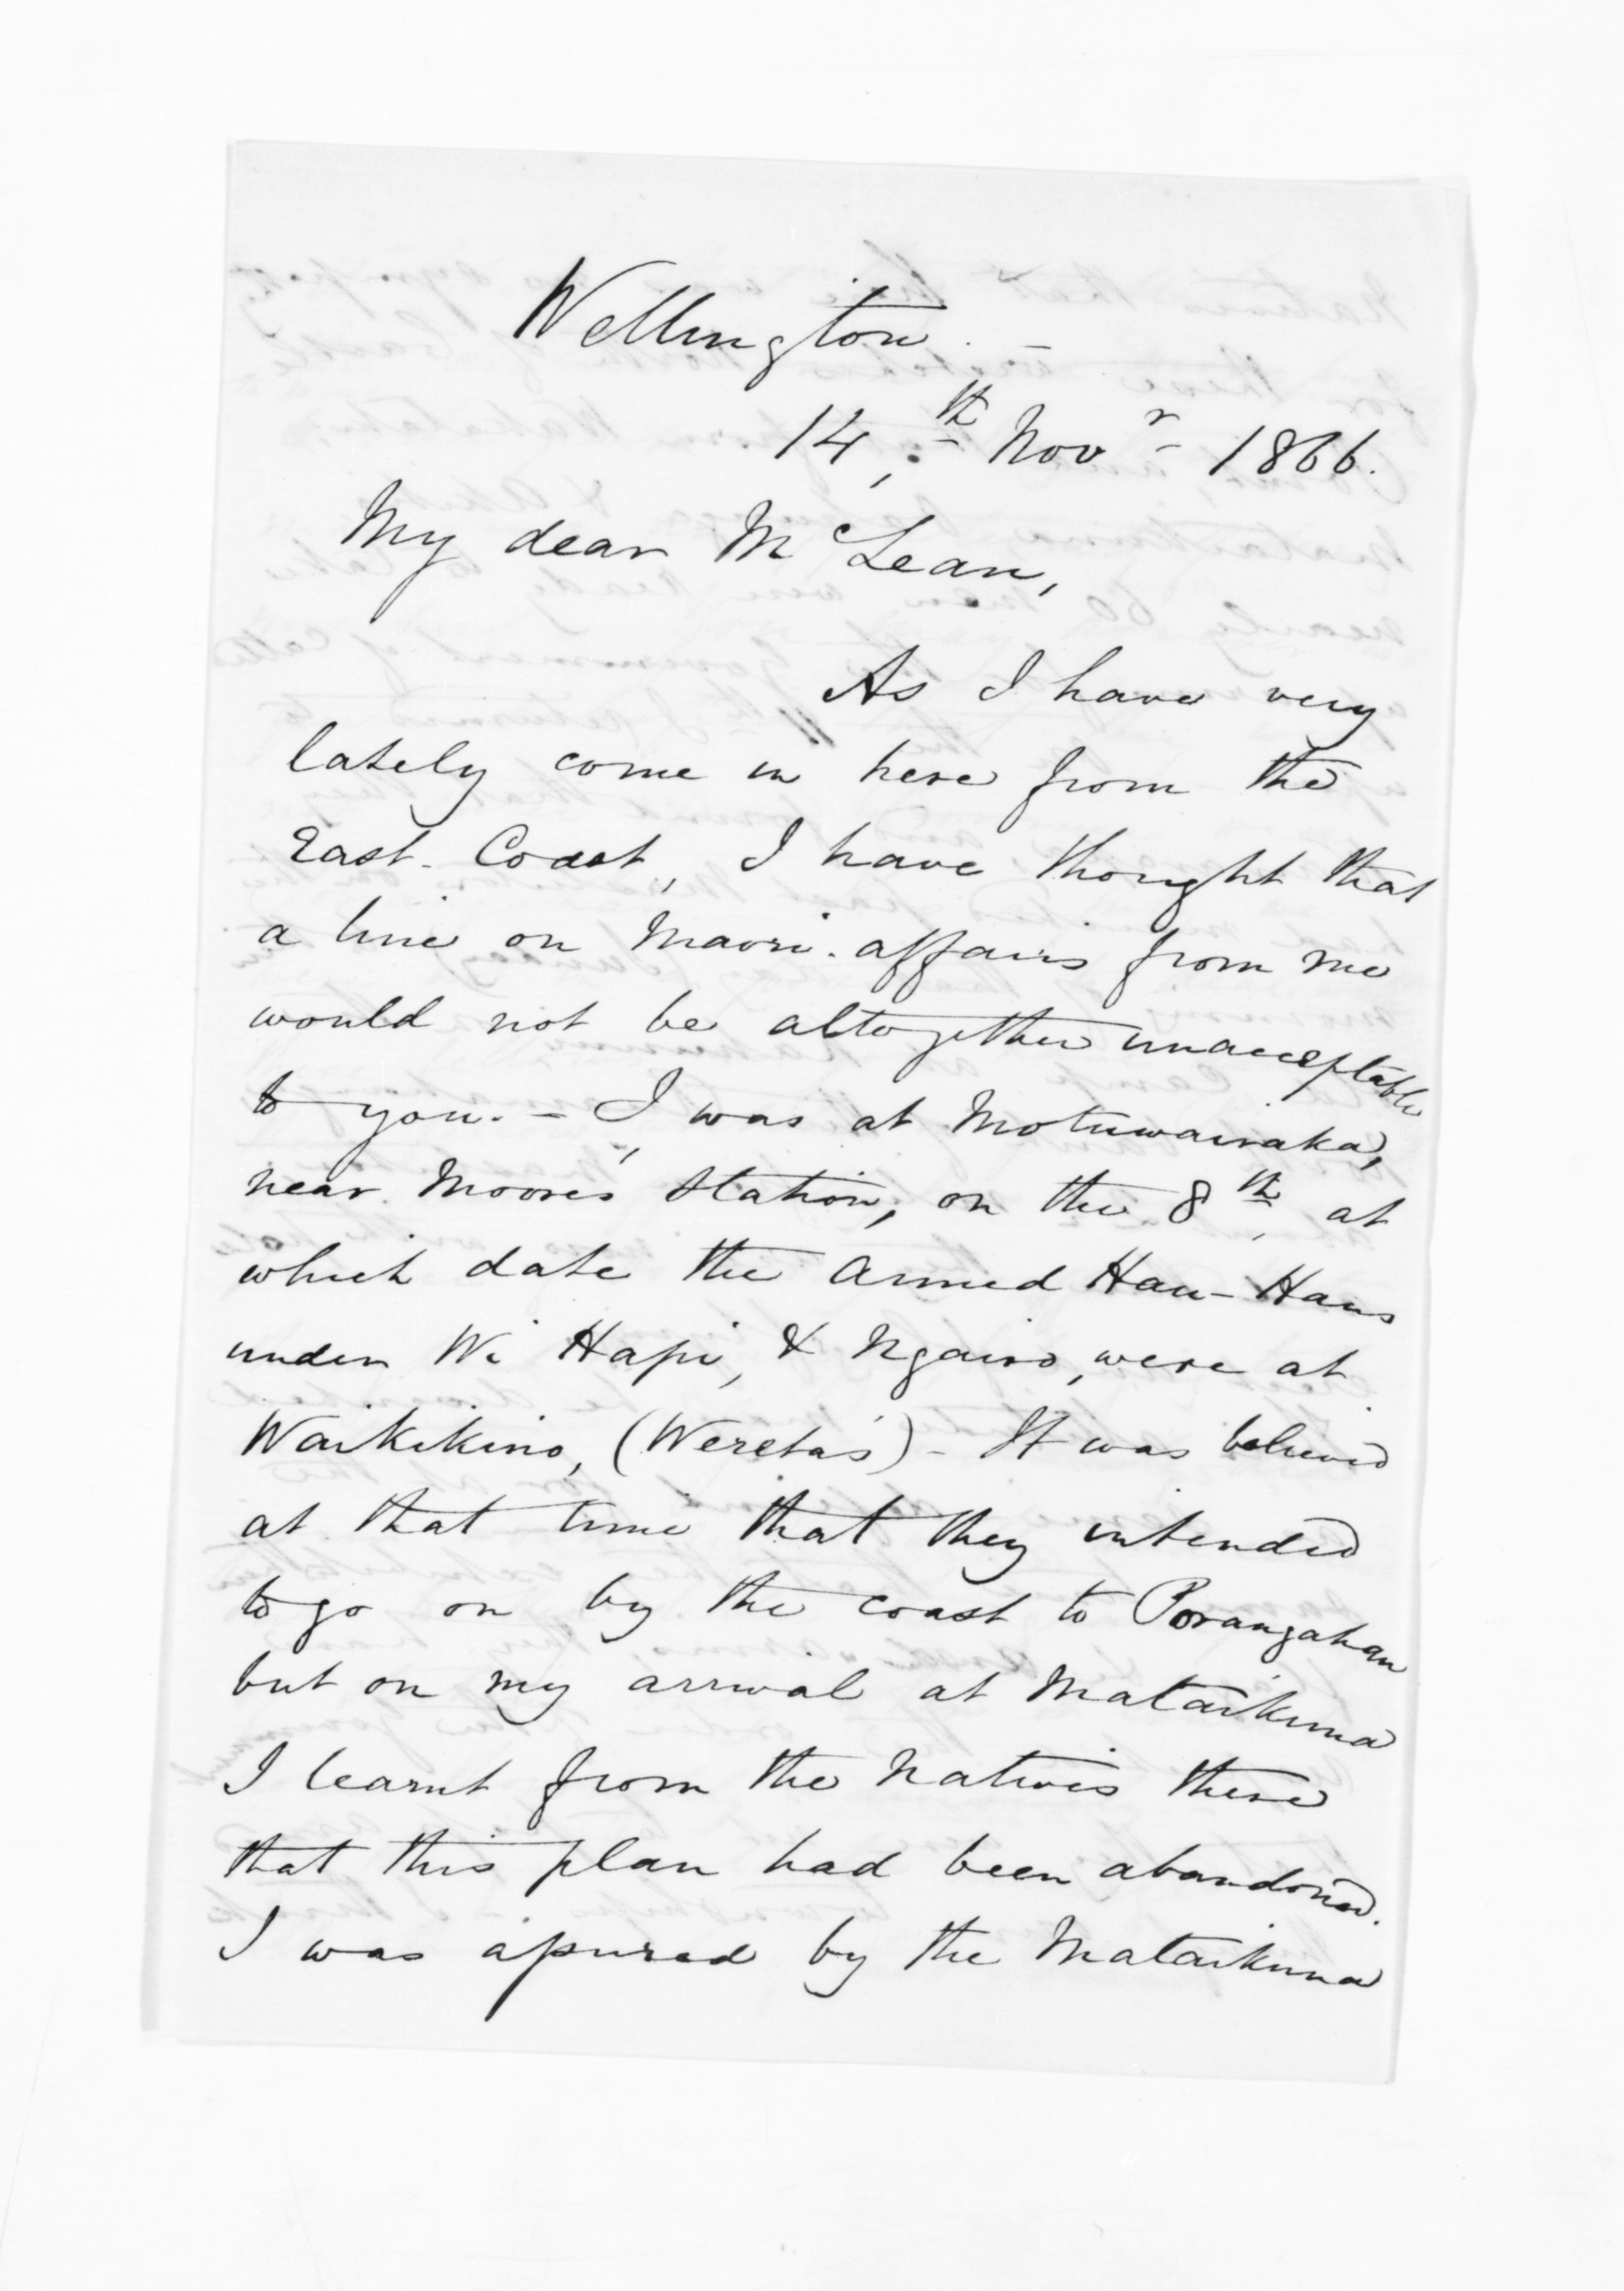 Wellington. -
14,th Novr 1866.
My dear McLean,
As I have very
lately come in here from the
East-Coast, I have thought that
a line on Maori affairs from me
would not be altogether unacceptable
to you. - I was at Motuwairaka,
near Moore's Station, on the 8th, at
which date the armed Hau-Haus
under Wi Hapi, & Ngairo, were at
Waikikino, (Wereta's) - It was believed
at that time that they intended
to go on by the coast to Porangahau
but on my arrival at Mataikuna
I learnt from the Natives there
that this plan had been abandoned.
I was assured by the Mataikuna